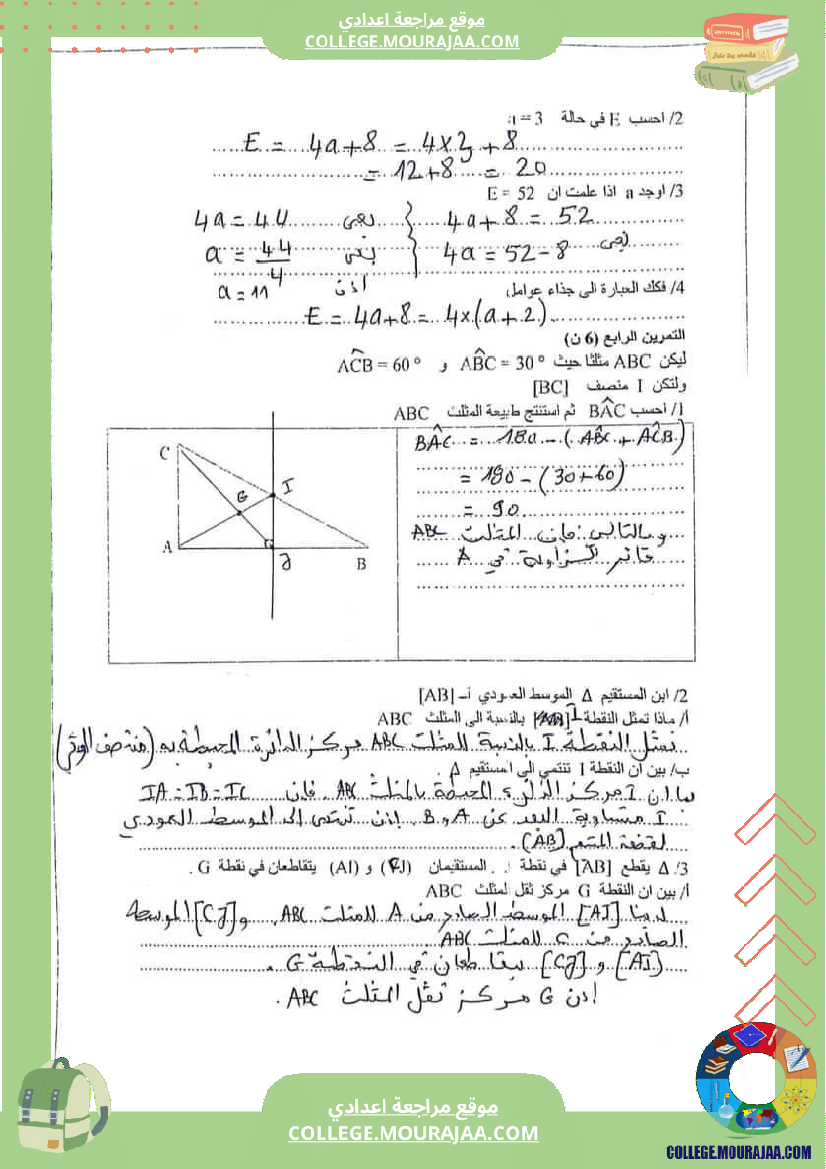 موقع مراجعة اعدادي
COLLEGE.MOURAJAA.COM
2/ احسب E في حالة a = 3
E = 4a+8 = 4x3 +8
= 12+8 = 20
3/ اوجد a اذا علمت ان E = 52
4a+8 = 52 يعني 4a = 44
يعني 4a = 52-8 يعني a = 44/4
اذن a = 11
4/ فكك العبارة الى جذاء عوامل
E = 4a+8 = 4x(a+2)
التمرين الرابع (6 ن)
ليكن ABC مثلثا حيث ABC = 30° و ACB = 60°
ولتكن I منصف [BC]
1/ احسب BAC ثم استنتج طبيعة المثلث ABC
BAC = 180 - (ABC + ACB)
= 180 - (30+60)
= 90
و بالتالي فإن المثلث ABC
قائم الزاوية في A
C
G
I
A
J
B
2/ ابن المستقيم Δ الموسط العمودي لـ [AB]
أ/ ماذا تمثل النقطة I بالنسبة الى المثلث ABC
تمثل النقطة I بالنسبة للمثلث ABC مركز الدائرة المحيطة به (منتصف الوتر)
ب/ بين ان النقطة I تنتمي الى المستقيم Δ
بما ان I مركز الدائرة المحيطة بالمثلث ABC فإن IA = IB = IC
I متساوية البعد عن A و B إذن تنتمي إلى الموسط العمودي
لقطعة المستقيم [AB].
3/ Δ يقطع [AB] في نقطة J. المستقيمان (CJ) و (AI) يتقاطعان في نقطة G.
أ/ بين ان النقطة G مركز ثقل لمثلث ABC
لدينا [AI] الموسط الصادر من A للمثلث ABC و [CJ] الموسط
الصادر من C للمثلث ABC
[AI] و [CJ] يتقاطعان في النقطة G.
اذن G مركز ثقل المثلث ABC.
موقع مراجعة اعدادي
COLLEGE.MOURAJAA.COM
COLLEGE.MOURAJAA.COM